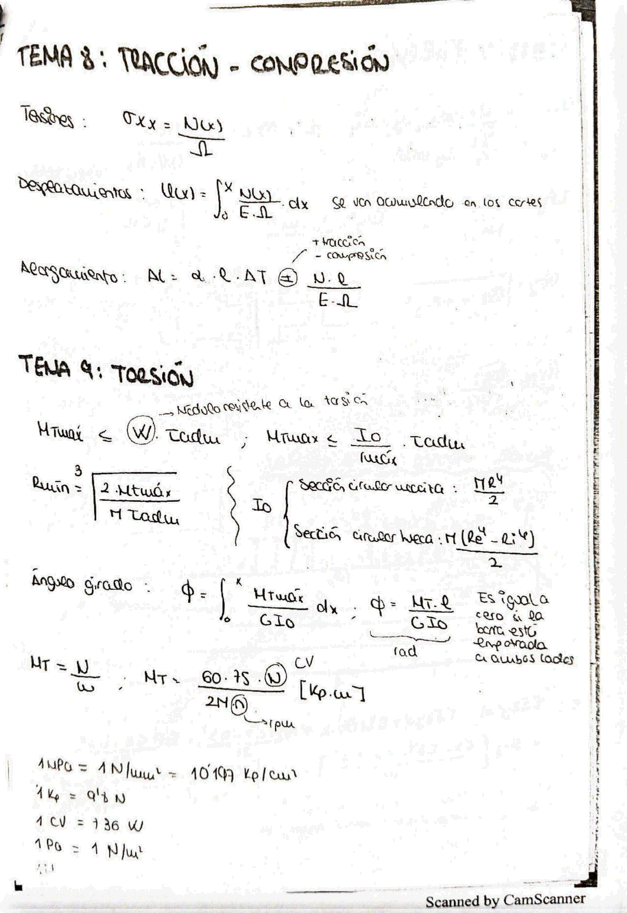 TEMA 8: TRACCIÓN - COMPRESIÓN
Tensiones: σxx = N(x) / Ω
Desplazamientos: U(x) = ∫₀ˣ N(x) / E·Ω · dx se van acumulando en los cortes
+ tracción
- compresión
Alargamiento: Δl = α · l · ΔT ± N·l / E·Ω
TEMA 9: TORSIÓN
→ Módulo resistente a la torsión
MTmáx ≤ W · τadm ; MTmax ≤ Io / rmáx · τadm
Rmín = ³√(2·Mtmáx / π τadm)
Io
Sección circular maciza: πR⁴ / 2
Sección circular hueca: π(Re⁴ - Ri⁴) / 2
Ángulo girado: Φ = ∫₀ˣ MTmáx / GIo dx ; Φ = MT·l / GIo
rad
Es igual a
cero si la
barra está
empotrada
a ambos lados
MT = N / ω ; MT = 60·75·N / 2πn [Kp·m]
CV
→ rpm
1 MPa = 1 N/mm² = 10'197 Kp/cm²
1 Kp = 9'8 N
1 CV = 736 W
1 Pa = 1 N/m²
Scanned by CamScanner